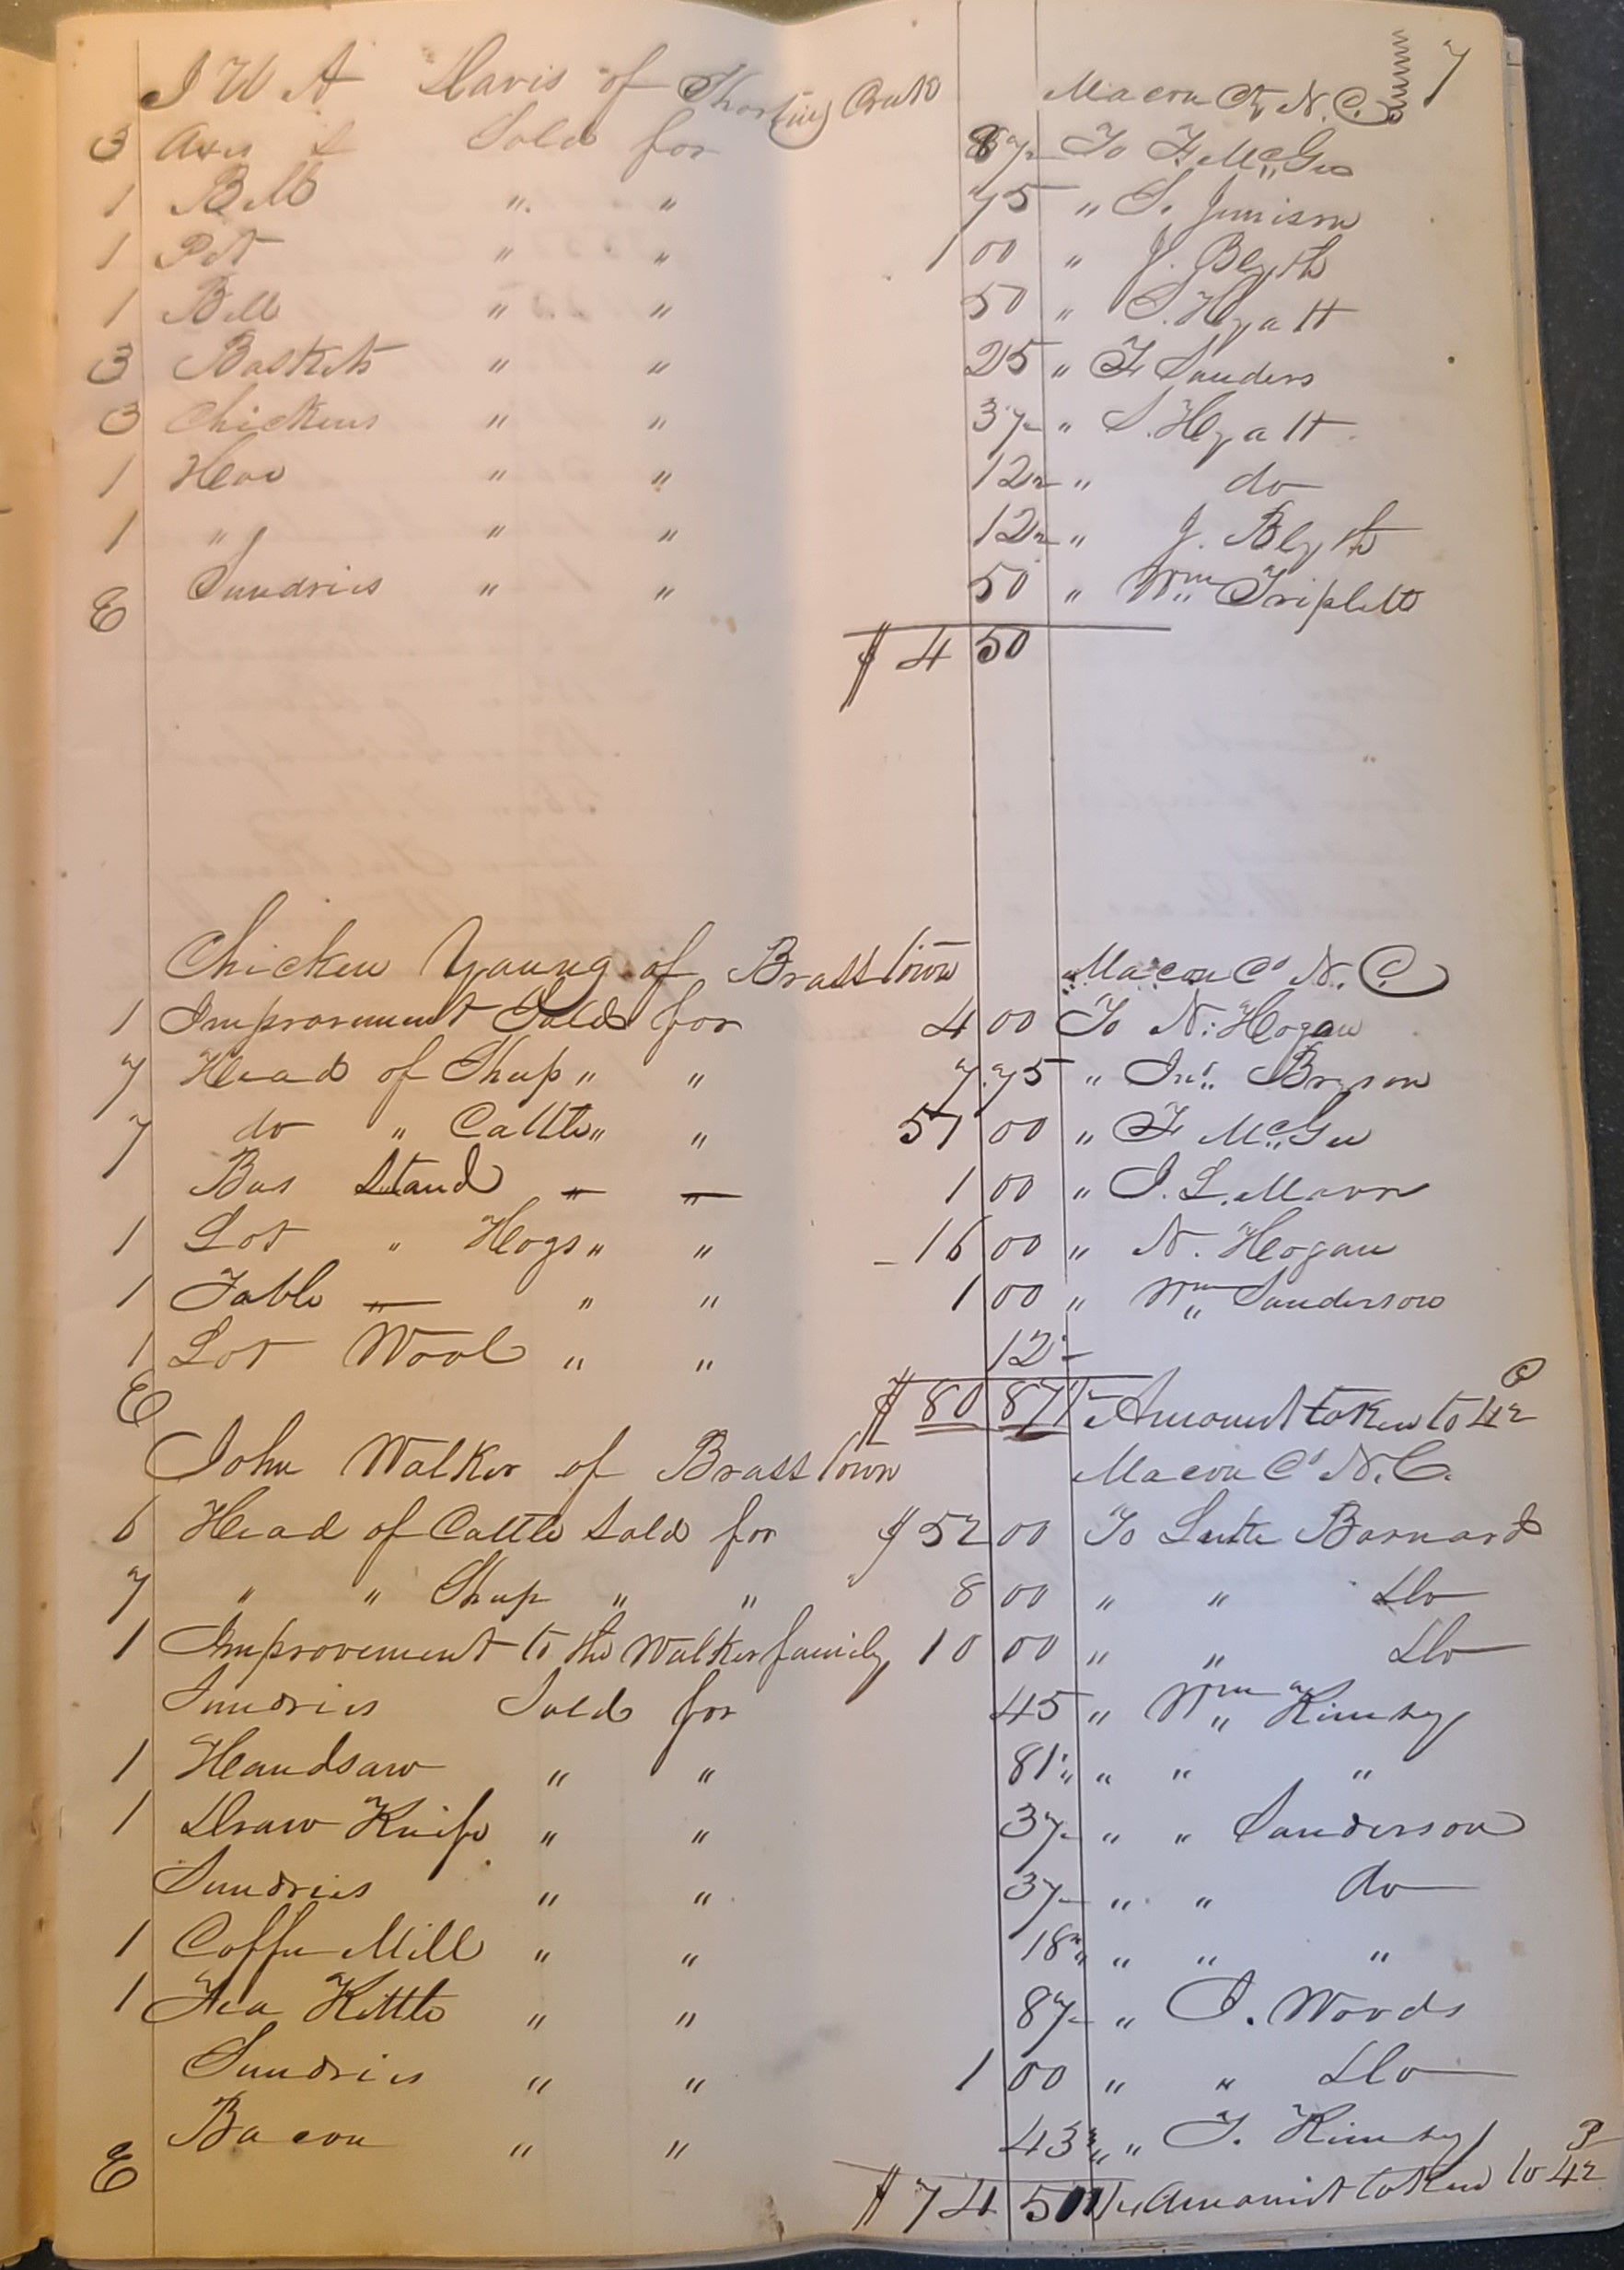 7
I W A Davis of Shooting Creek Macon Co N. C.
3 Axes & Sold for 87½ To F McGee
1 Bell " " 75 " S. Jimison
1 Pot " " 1 00 " J. Blyth
1 Bell " " 50 " S. Hyatt
3 Baskets " " 25 " F Sanders
3 Chickens " " 37½ " S. Hyatt
1 Hoe " " 12½ " do
1 " " " 12½ " J. Blyth
E Sundries " " 50 " Wm Triplett
$ 4 50
Chicken Young of Brasstown Macon Co N. C.
1 Improvement Sold for 4 00 To N. Hogan
7 Head of Sheep " " 7.75 " Jno. Bryson
7 do " Cattle " " 51 00 " F McGee
Bee Stand " " 1 00 " I. L. Mann
1 Lot " Hogs " " 16 00 " N. Hogan
1 Table " " " 1 00 " Wm Sanderson
1 Lot Wool " " 12½
E $ 80 87½ Amount taken to P 42
John Walker of Brasstown Macon Co N. C.
6 Head of Cattle Sold for $ 52 00 To Lute Barnard
7 " " Sheep " " 8 00 " " Do
1 Improvement to the Walker family 10 00 " " Do
Sundries Sold for 45 " Wm Kimsey
1 Handsaw " " 81¼ " " "
1 Draw Knife " " 37½ " " Sanderson
Sundries " " 37½ " " do
1 Coffee Mill " " 18¾ " " "
1 Tea Kettle " " 87½ " J. Woods
Sundries " " 1 00 " " Do
Bacon " " 43¾ " T. Kimsey
E $ 74 50 Amount taken to P 42